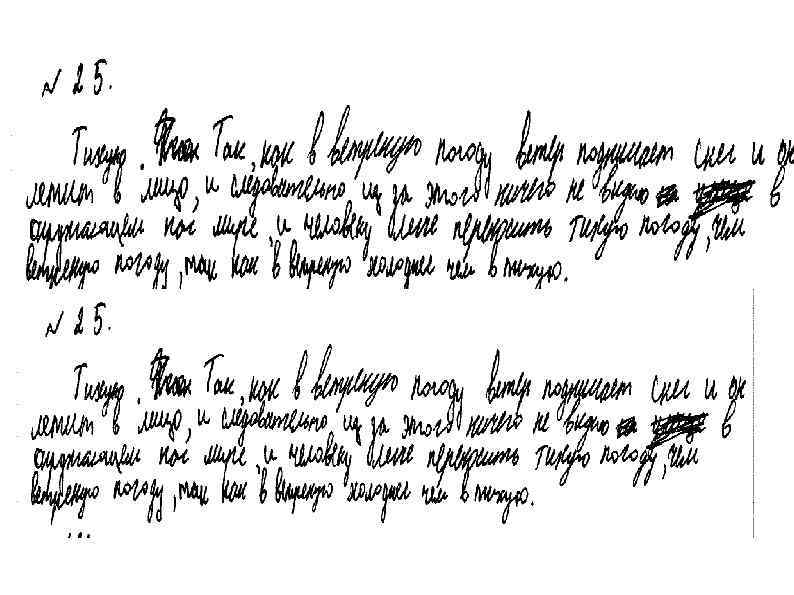 № 25.
Тихую. Так, как в ветреную погоду ветер поднимает снег и он
летит в лицо, и следовательно из за этого ничего не видно в
окружающем нас мире, и человеку легче пережить тихую погоду, чем
ветреную погоду, так как в ветреную холоднее чем в тихую.
№ 25.
Тихую. Так, как в ветреную погоду ветер поднимает снег и он
летит в лицо, и следовательно из за этого ничего не видно в
окружающем нас мире, и человеку легче пережить тихую погоду, чем
ветреную погоду, так как в ветреную холоднее чем в тихую.